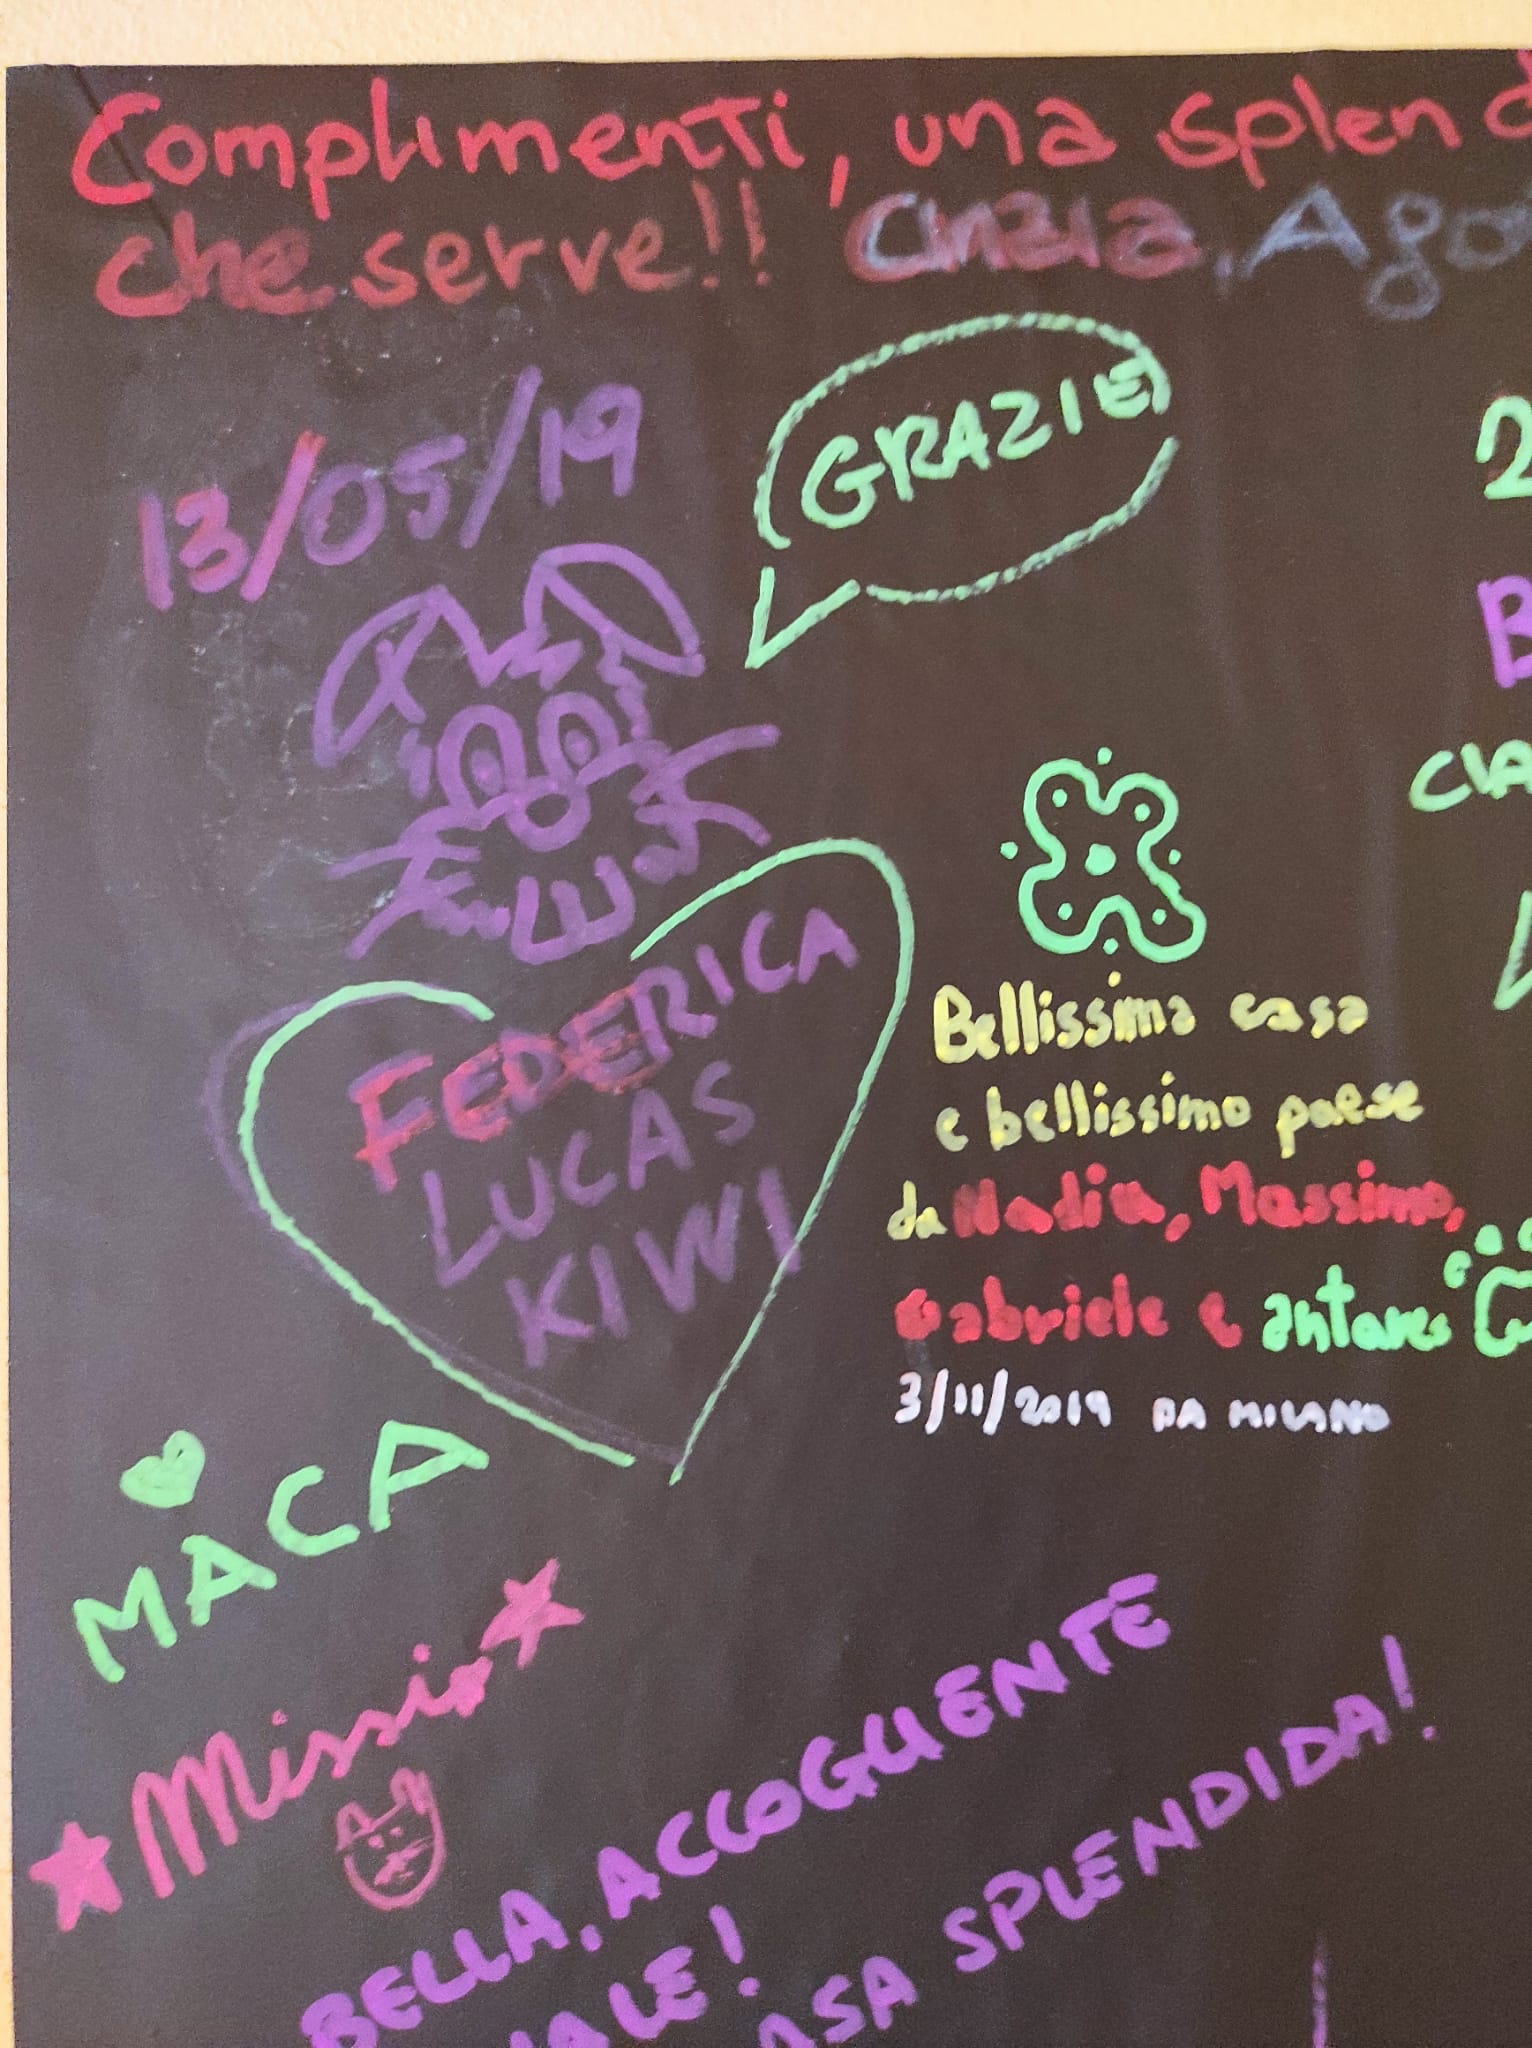 Complimenti, una splend
che serve!! Cinzia, Ago
13/05/19
GRAZIE
2
B
CIA
FEDERICA
LUCAS
KIWI
Bellissima casa
e bellissimo paese
da Nadia, Massimo,
Gabriele e antares
3/11/2019 DA MILANO
MACA
Missio
BELLA, ACCOGLIENTE
ALE!
ASA SPLENDIDA!